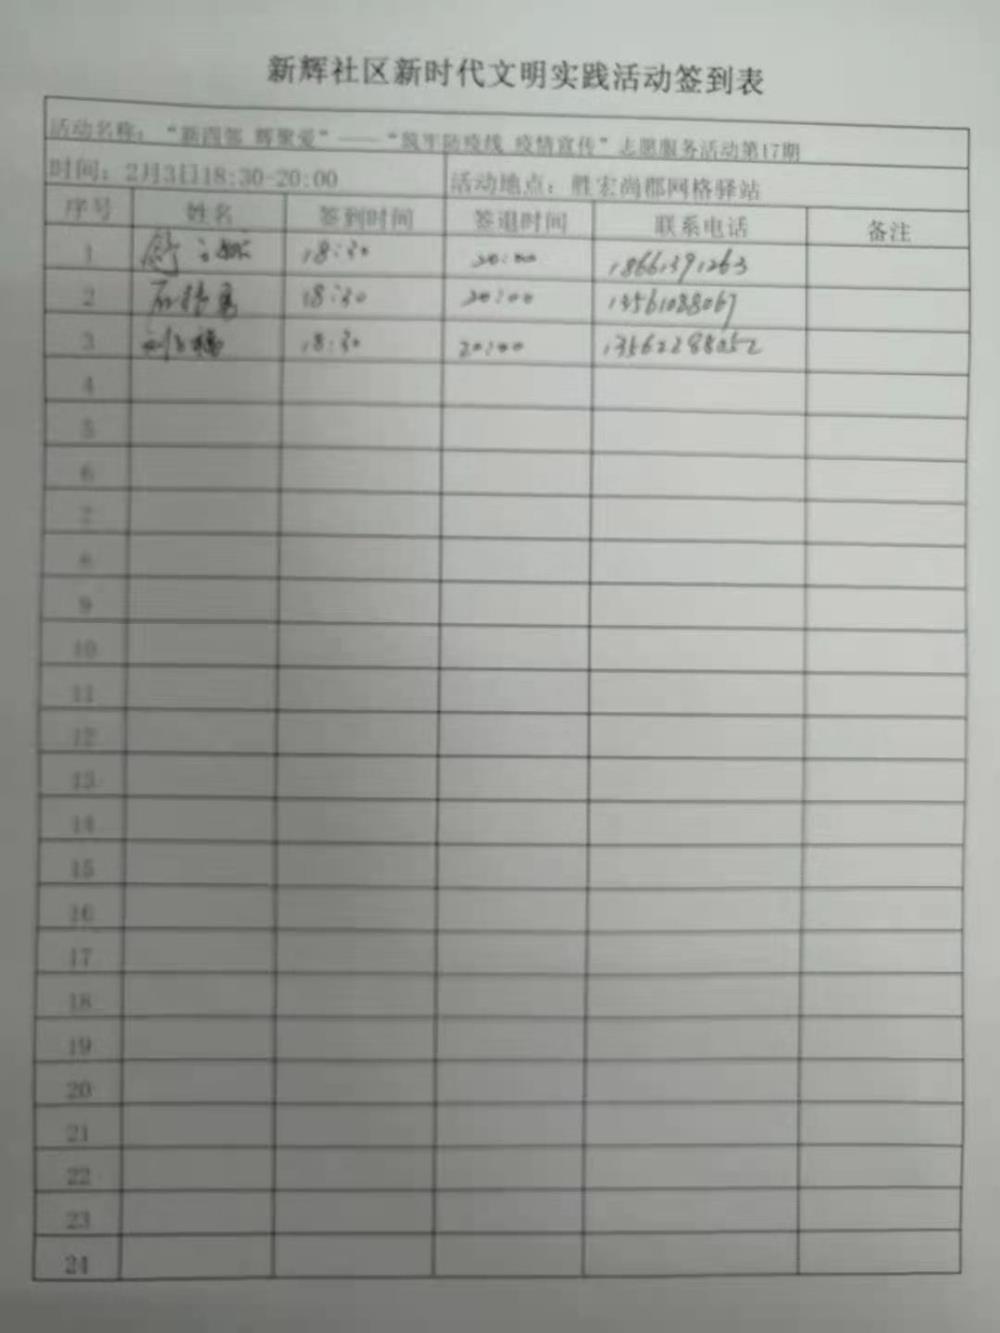 新辉社区新时代文明实践活动签到表
活动名称：“新四邻 辉聚爱”——“筑牢防疫线 疫情宣传”志愿服务活动第17期
时间：2月3日18:30-20:00 活动地点：胜宏尚郡网格驿站
序号 姓名 签到时间 签退时间 联系电话 备注
1 18:30 20:00 18661391263
2 18:30 20:00 13561088067
3 18:30 20:00 13562288052
4
5
6
7
8
9
10
11
12
13
14
15
16
17
18
19
20
21
22
23
24